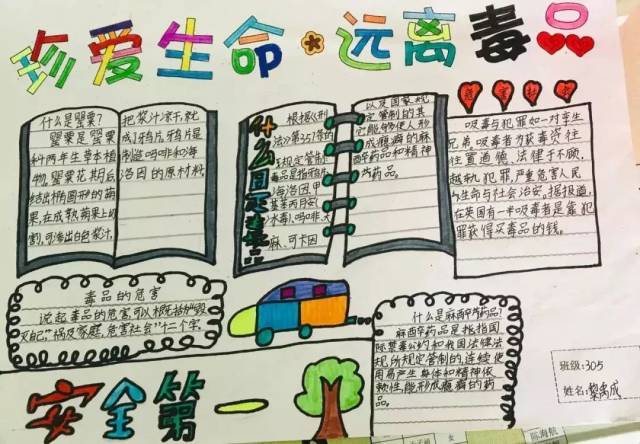 珍爱生命·远离毒品
什么是罂粟?
罂粟是罂粟
科两年生草本植
物,罂粟花期后
结出椭圆形的蒴
果,在成熟蒴果上
割,可渗出白色浆汁,
把浆汁凉干,就
成了鸦片,鸦片是
制造吗啡和海
洛因的原材料
什么同是毒品
根据《刑
法》第357条的
规定管制
毒品是指鸦片
海洛因 甲
基苯丙月安(
冰毒)、吗啡、大
麻、可卡因
以及国家规
定管制的其
它能够使人形
成瘾癖的麻
醉药品和精神
药品。
危害社会
吸毒与犯罪如一对孪生
兄弟,吸毒者为获毒资往
往置道德、法律于不顾,
越轨犯罪,严重危害人民
生命与社会治安。据报道,
在英国有一半吸毒者是靠犯
罪获得买毒品的钱。
毒品的危害
说起毒品的危害,可以概括为“毁
灭自己,”祸及家庭,危害社会”十二个字。
什么是麻醉药品?
麻醉药品是指国
际禁毒公约和我国法律法
规所规定管制的,连续使
用易产生身体和精神依
赖性,能形成瘾癖的药
品。
安全第一
班级:305
姓名:黎禹成
陈海航